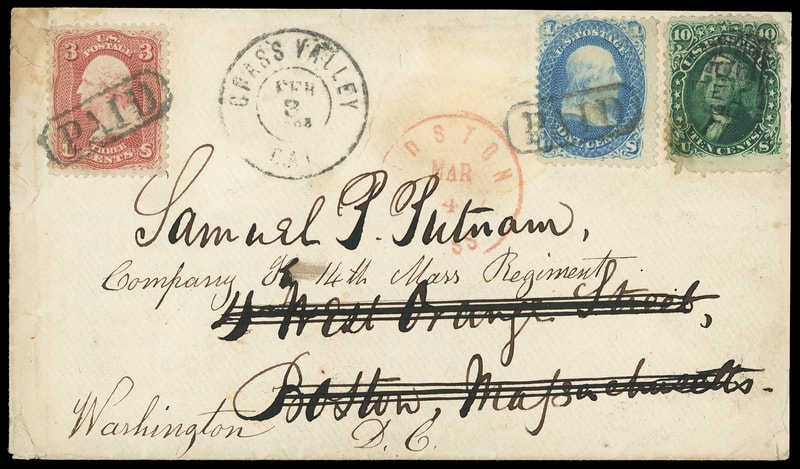 3 U.S. 3
POSTAGE
THREE
CENTS
U S
PAID
GRASS VALLEY
FEB
3
CAL
BOSTON
MAR
4
1
U.S. POSTAGE
ONE CENT
U S
PAID
10 10
U.S. POSTAGE
TEN CENTS
U S
Samuel P. Putnam,
Company K 14th Mass Regiment
4 West Orange Street,
Boston, Massachusetts.
Washington D. C.